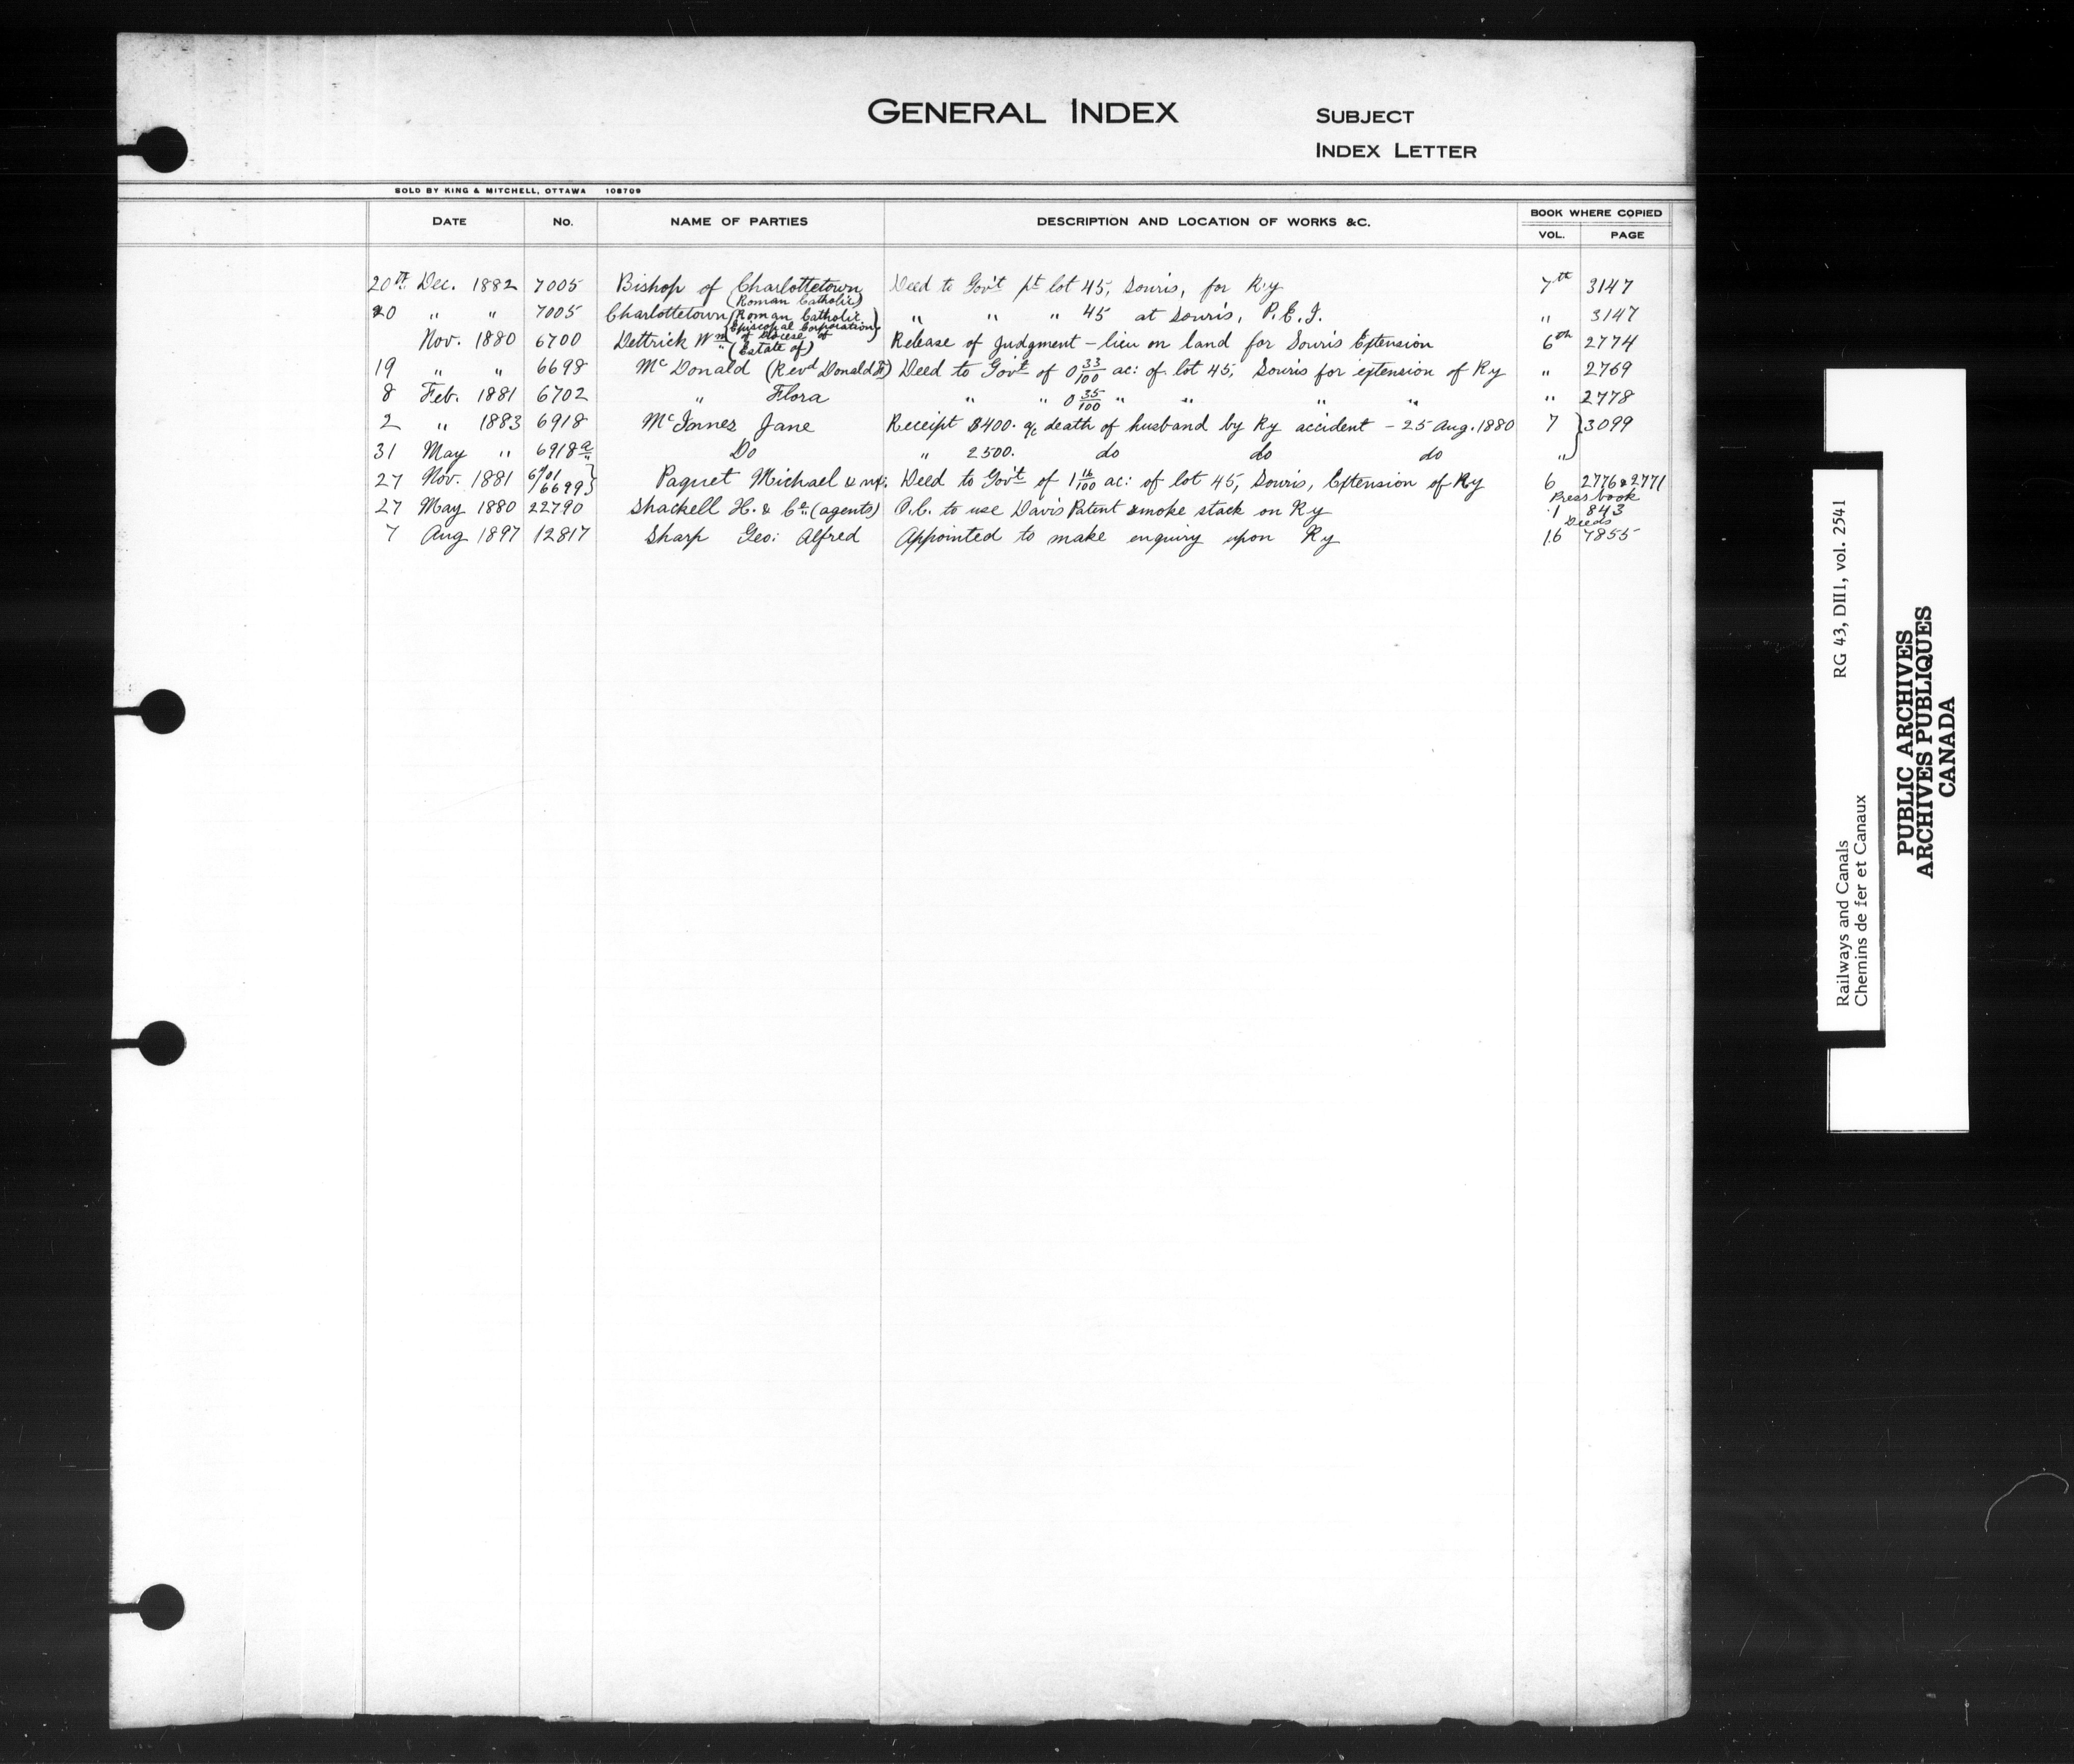 GENERAL INDEX
SUBJECT
INDEX LETTER
SOLD BY KING & MITCHELL, OTTAWA 108709
DATE No. NAME OF PARTIES DESCRIPTION AND LOCATION OF WORKS &C. BOOK WHERE COPIED
VOL. PAGE
20th Dec. 1882 7005 Bishop of Charlottetown Deed to Gov't pt lot 45, Souris, for Ry 7th 3147
(Roman Catholic)
20 " " 7005 Charlottetown (Roman Catholic " " " 45 at Souris, P.E.I. " 3147
Episcopal Corporation
of Diocese of)
Nov. 1880 6700 Dettrick Wm Release of judgment - lien on land for Souris Extension 6th 2774
" (Estate of)
19 " " 6698 McDonald (Revd Donald F) Deed to Gov't of 0 33/100 ac: of lot 45, Souris for extension of Ry " 2769
8 Feb. 1881 6702 " Flora " " 0 35/100 " " " " " 2778
2 " 1883 6918 McInnes Jane Receipt $400. a/c death of husband by Ry accident - 25 Aug. 1880 7 } 3099
31 May " 6918a Do " 2500. do do do "
27 Nov. 1881 6701 / 6699 } Paquet Michael & ux. Deed to Gov't of 1 16/100 ac: of lot 45, Souris, Extension of Ry 6 2776 & 2771
Press book
27 May 1880 22790 Shackell H. & Co. (agents) O.C. to use Davis Patent smoke stack on Ry 1 843
Deeds
7 Aug 1897 12817 Sharp Geo: Alfred Appointed to make enquiry upon Ry 16 7855
RG 43, DII1, vol. 2541
Railways and Canals
Chemins de fer et Canaux
PUBLIC ARCHIVES
ARCHIVES PUBLIQUES
CANADA